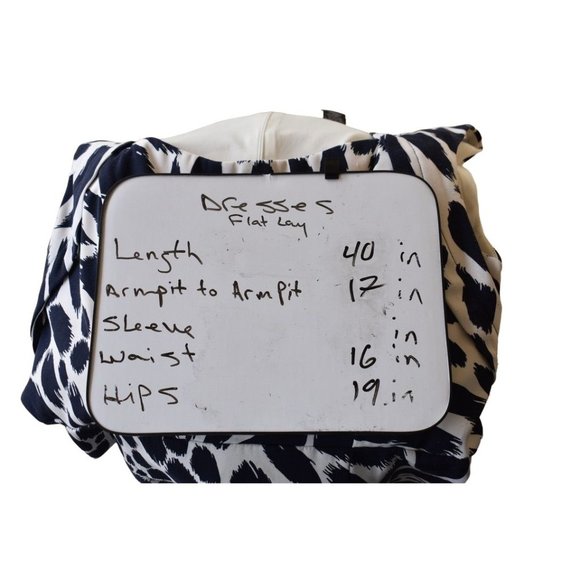 Dresses
Flat Lay
Length 40 in
Armpit to Armpit 17 in
Sleeve in
Waist 16 in
Hips 19 in